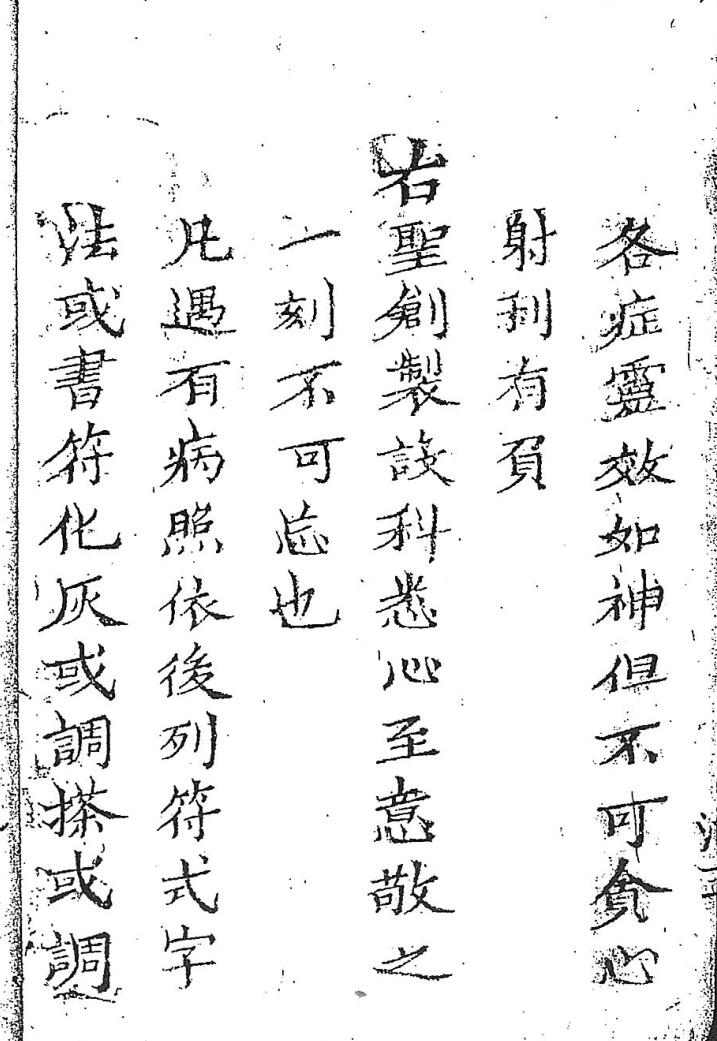 各症靈效如神但不可貪心
射利有負
右聖創製設科悉心至意敬之
一刻不可忘也
凡遇有病照依後列符式字
法或書符化灰或調搽或調